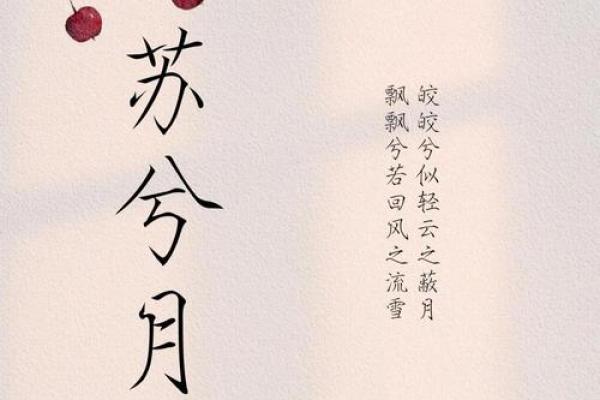 苏兮月
皎皎兮似轻云之蔽月
飘飘兮若回风之流雪